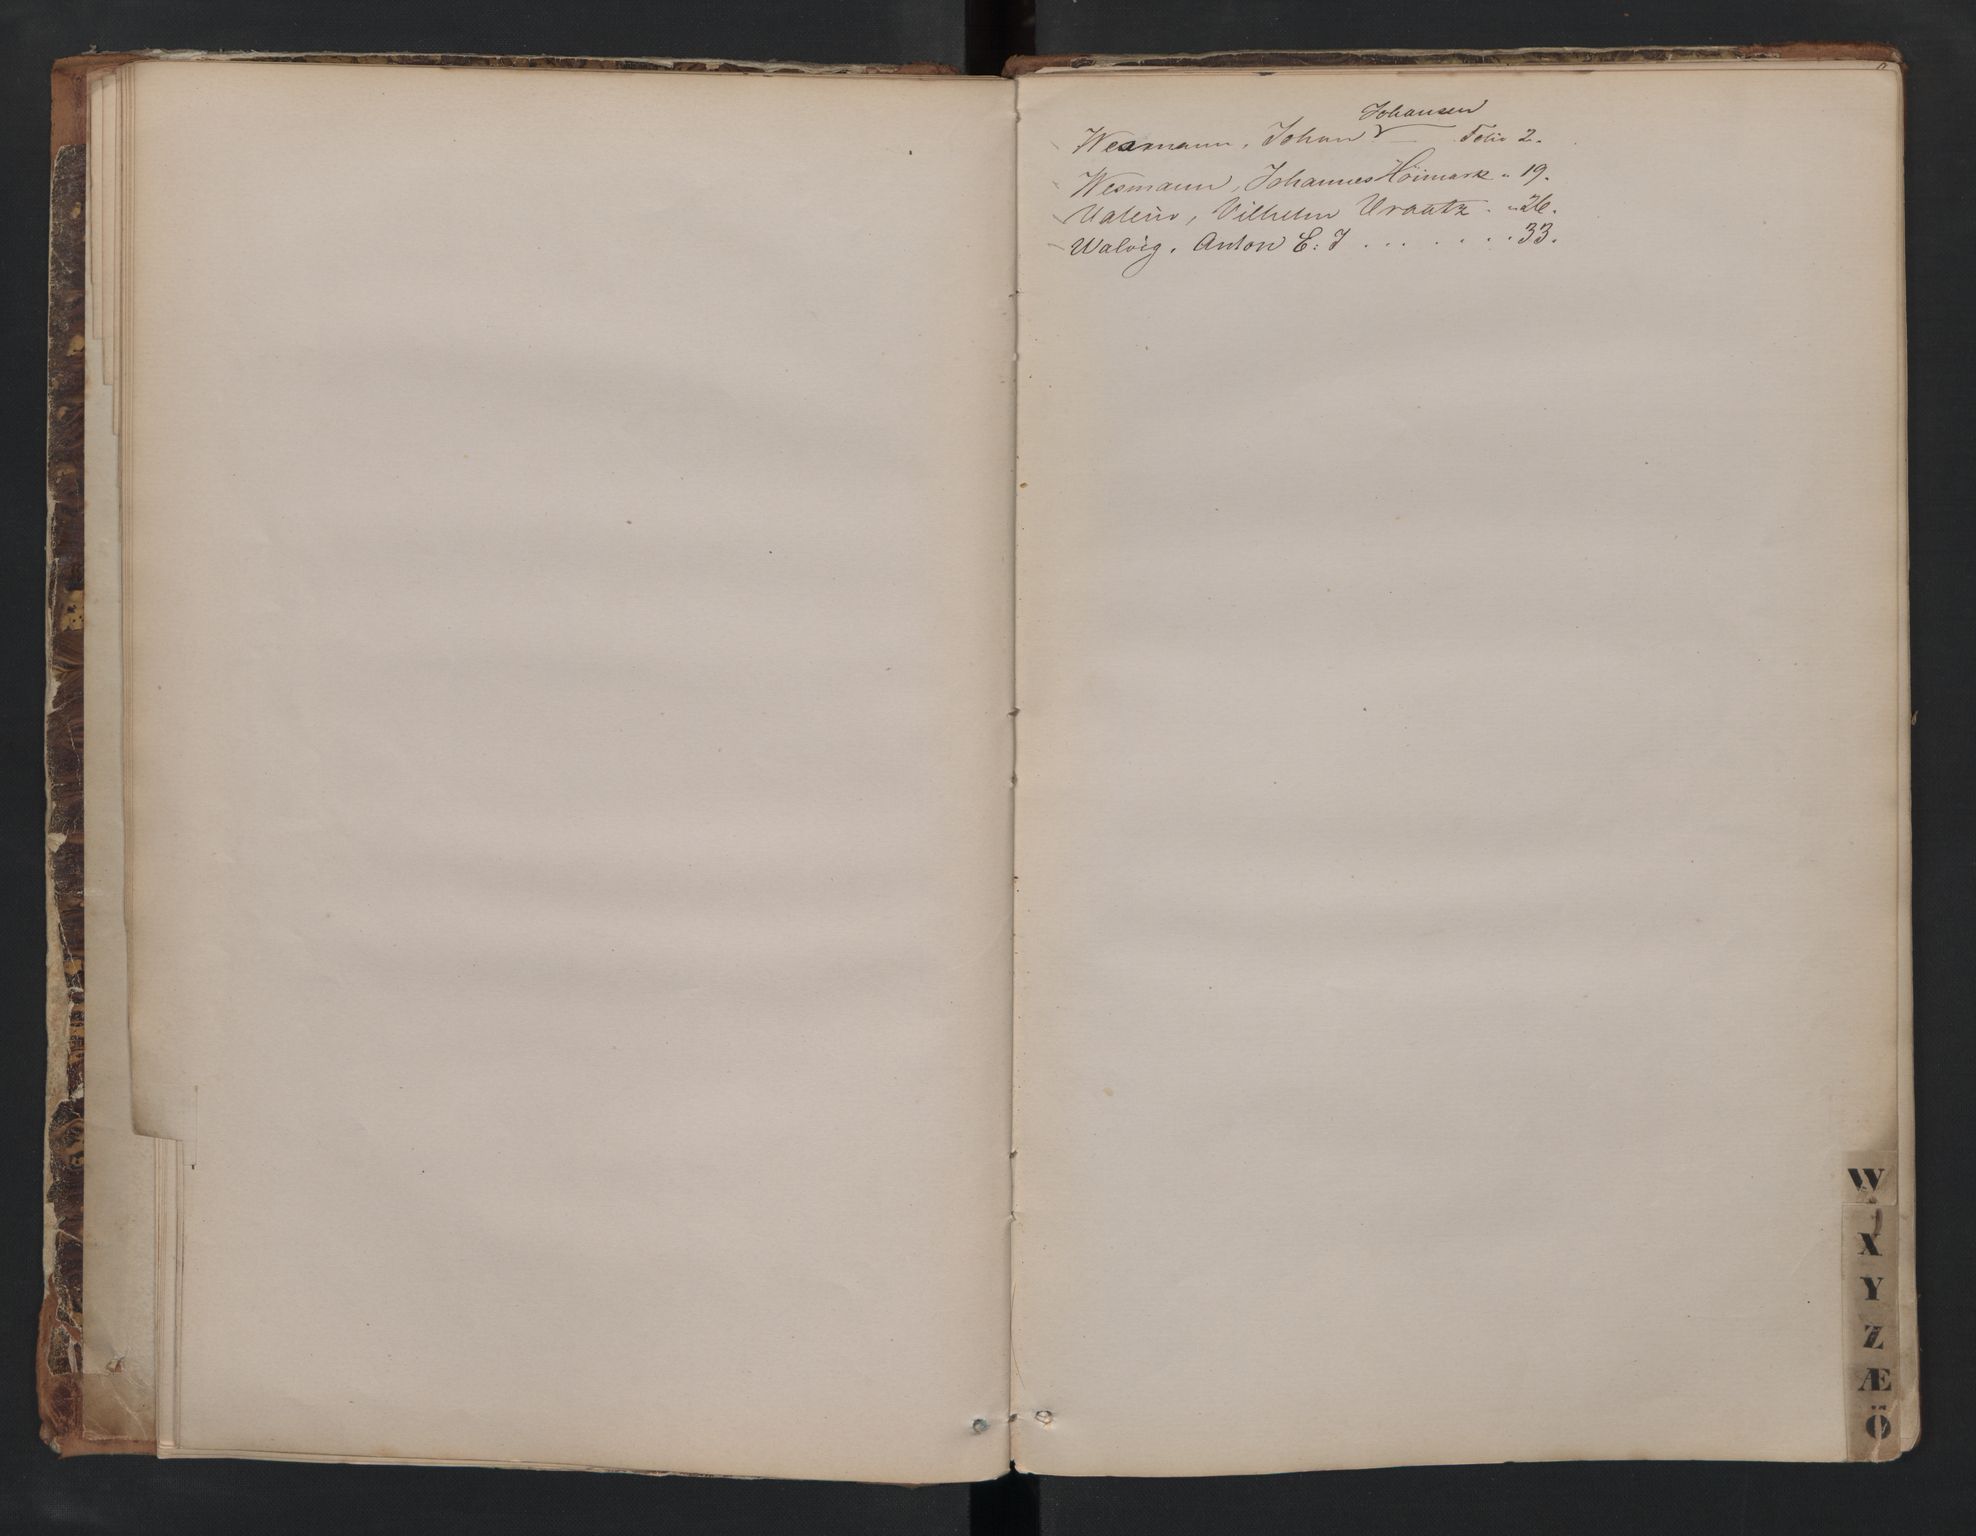 Johansen
Wesmann, Johan — Folio 2.
Wesmann, Johannes Höimark " 19.
Valeur, Vilhelm Uraatz . " 26.
Walvig, Anton E: J . . . . . . . 33.
W
X
Y
Z
Æ
Ö